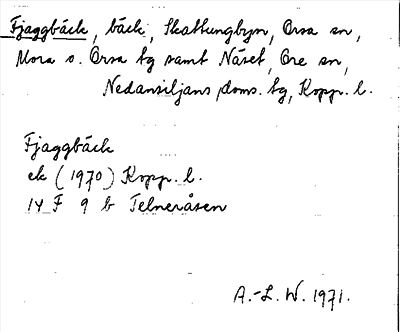 Fjäggbäck, bäck, Skattungbyn, Orsa sn,
Mora o. Orsa tg samt Näset, Ore sn,
Nedansiljans doms. tg, Kopp. l.
Fjäggbäck
ek (1970) Kopp. l.
14 F 9 b Telneråsen
A.-L. W. 1971.